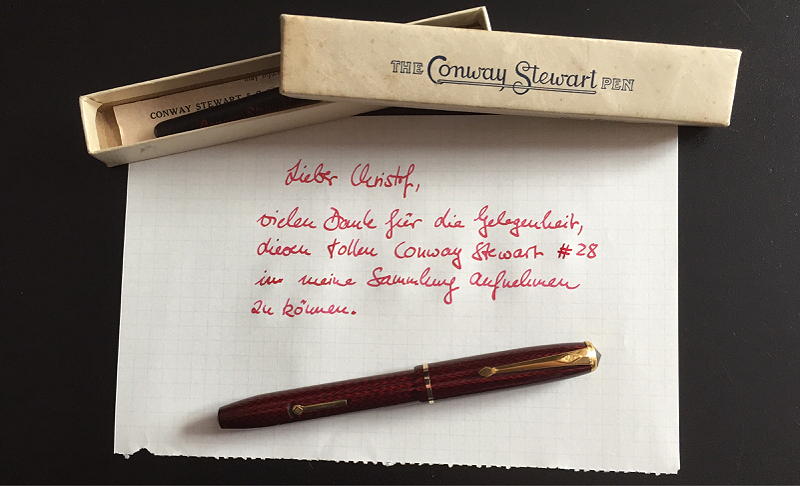 THE Conway Stewart PEN
CONWAY STEWART & C
Lieber Christof,
vielen Dank für die Gelegenheit,
diesen tollen Conway Stewart #28
in meine Sammlung aufnehmen
zu können.